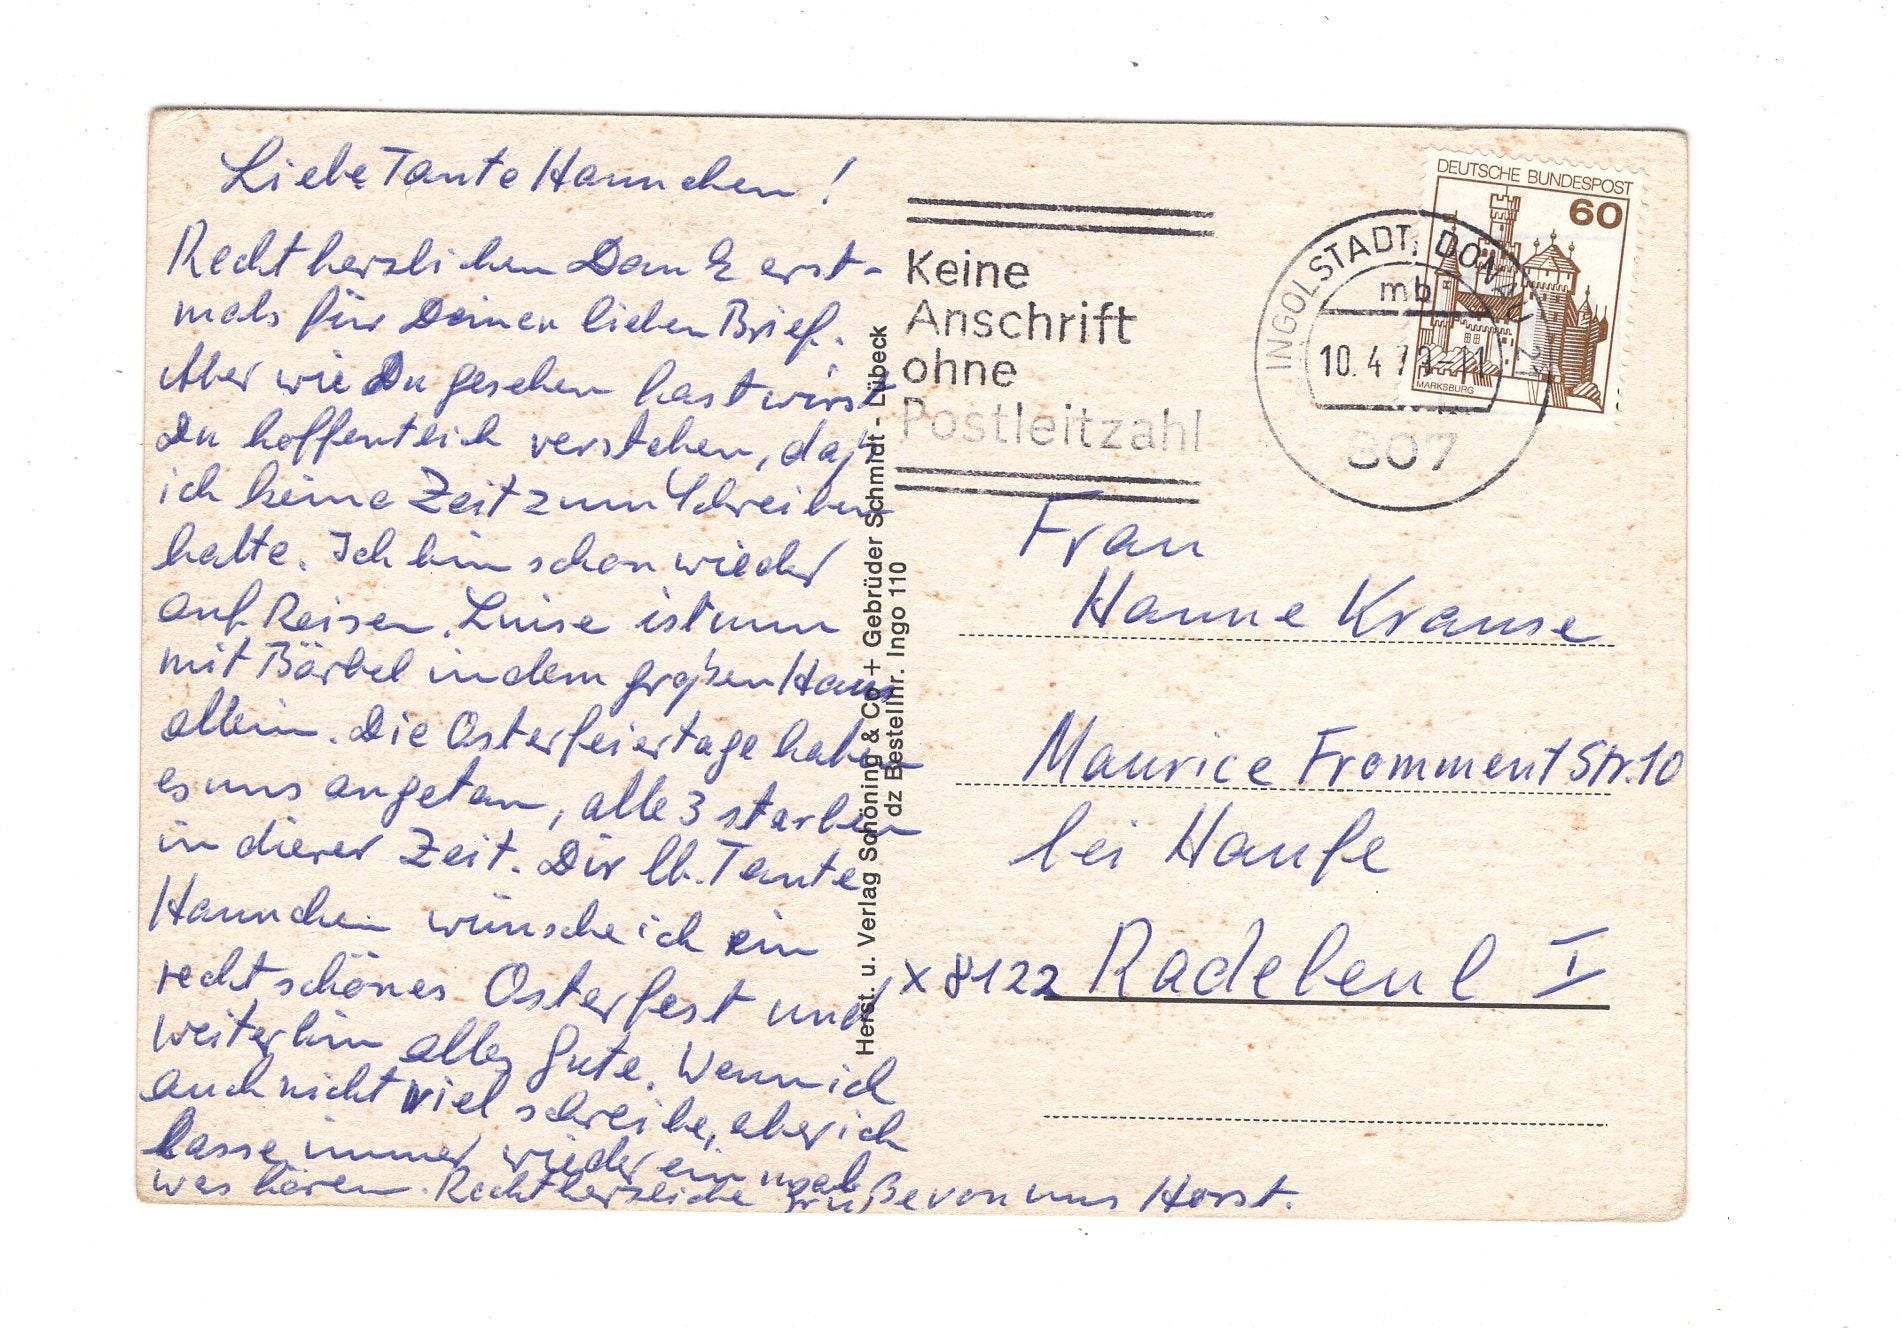 Liebe Tante Hannchen!
Recht herzlichen Dank erst-
mals für Deinen lieben Brief.
Aber wie Du gesehen hast wirst
Du hoffentlich verstehen, daß
ich keine Zeit zum Schreiben
hatte. Ich bin schon wieder
auf Reisen. Luise ist nun
mit Bärbel in dem großen Haus
allein. Die Osterfeiertage haben
es uns angetan, alle 3 starben
in dieser Zeit. Dir lb. Tante
Hannchen wünsche ich ein
recht schönes Osterfest und
weiterhin alles gute. Wenn ich
auch nicht viel schreibe, aber ich
lasse immer wieder ein mal
was hören. Recht herzliche Grüße von uns Horst.
Herst. u. Verlag Schöning & Co + Gebrüder Schmidt - Lübeck
dz Bestellnr. Ingo 110
Keine
Anschrift
ohne
Postleitzahl
INGOLSTADT, DONAU
mb
10.4.79-11
807
DEUTSCHE BUNDESPOST
60
MARKSBURG
Frau
Hanne Krause
Maurice Fromment Str. 10
bei Haufe
X 8122 Radebeul I